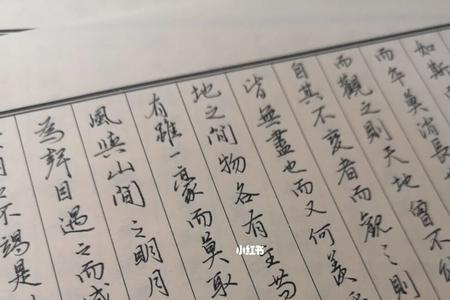 如斯
而卒莫消長也
而觀之則天地曾不
自其不變者而觀之則
皆無盡也而又何羨
地之間物各有主苟
有雖一豪而莫取
風與山間之明月
為聲目遇之而成
用之不竭是
小红书